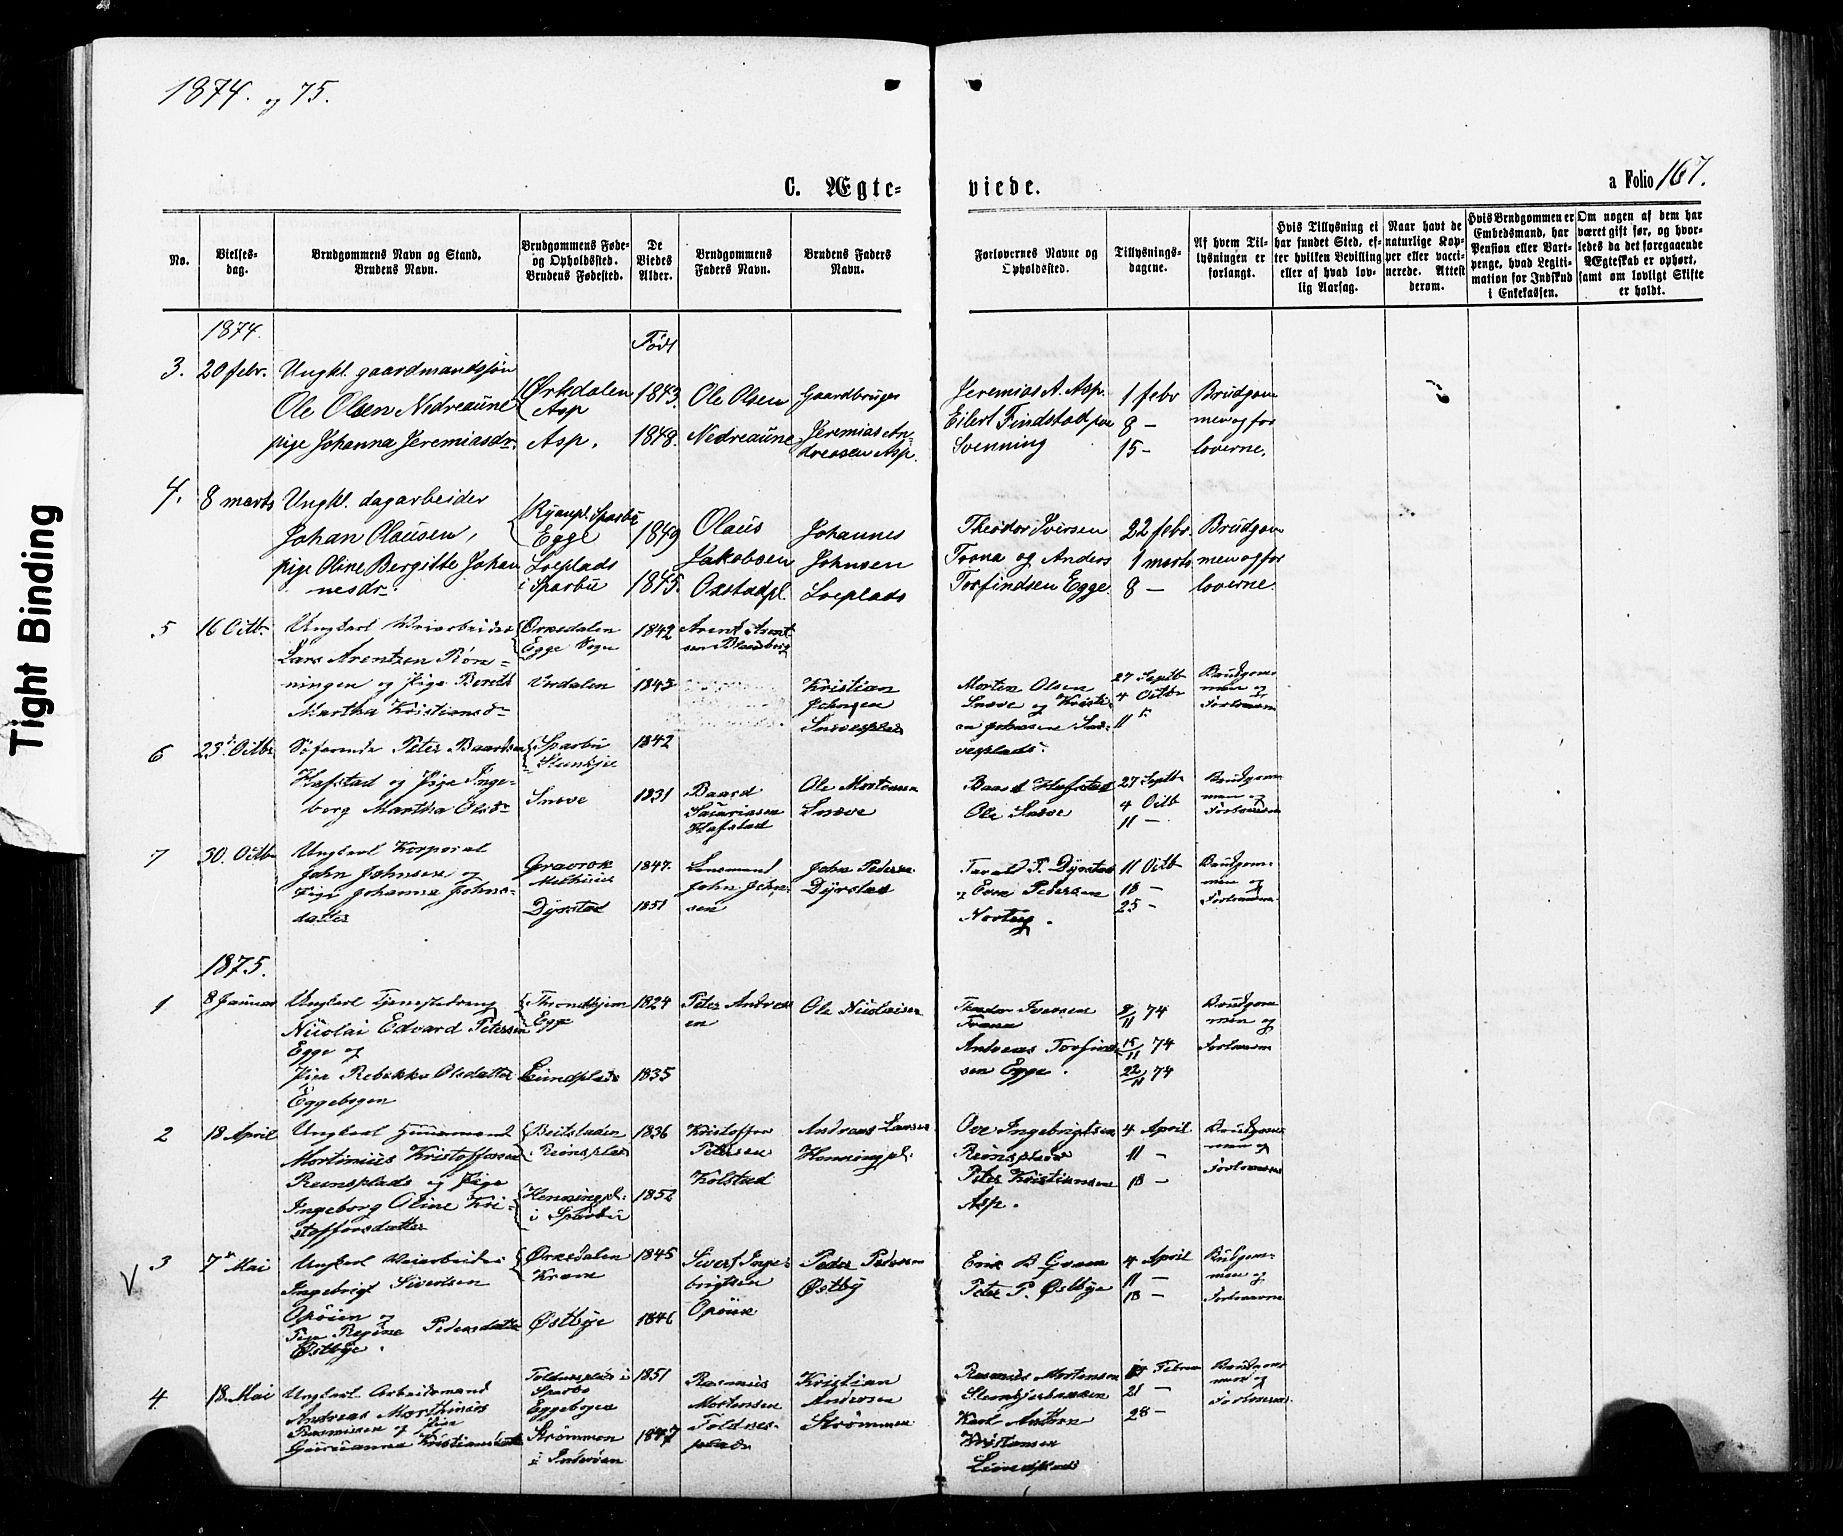 1874. og 75.
C. Ægte-
viede.
a Folio 167.
No.
Vielses-
dag.
Brudgommens Navn og Stand.
Brudens Navn.
Brudgommens Føde-
og Opholdssted.
Brudens Fødested.
De
Viedes
Alder.
Brudgommens
Faders Navn.
Brudens Faders
Navn.
Forlovernes Navne og
Opholdssted.
Tillysnings-
dagene.
Af hvem Til-
lysningen er
forlangt.
Hvis Tillysning ei
har fundet Sted, ef-
ter hvilken Bevilling
eller af hvad lov-
lig Aarsag.
Naar havt de
naturlige Kop-
per eller vacci-
nerede. Attest
derom.
Hvis Brudgommen er
Embedsmand, har
Pension eller Vart-
penge, hvad Legiti-
mation for Indskud
i Enkekassen.
Om nogen af dem har
været gift før, og hvor-
ledes da det foregaaende
Ægteskab er ophørt,
samt om lovligt Skifte
er holdt.
1874.
Født
3. 20 febr.
Ungkl. gaardmandssøn
Ole Olsen Nedreaune
pige Johanna Jeremiasdr.
Ørkdalen
Asp
Asp.
1843.
1848.
Ole Olsen
Nedreaune
Gaardbruger
Jeremias An-
dreasen Asp.
Jeremias A. Asp.
Eilert Findstad
Svenning
1 febr
8 —
15 —
Brudgom
men og for
loverne.
4. 8 marts
Ungkl. dagarbeider
Johan Olausen,
pige Oline Bergitte Johan
nesdr.
Sparbu
Egge
Loeplads
i Sparbu
1849
1845.
Olaus
Jakobsen
Oxstadpl.
Johannes
Johnsen
Loeplads
Theodor Iversen
Trana og Anders
Torfindsen Egge
22 febr.
1 marts
8 —
Brudgom
men og for
loverne.
5 16 Octbr
Ungkarl Veiarbeider
Lars Arentzen Røn-
ningen og Pige Berit
Martha Kristiansd-
Orkedalen
Egge Sogn
Verdalen
1842
1843
Arent Arent
sen
Kristian
Johnsen
Snøveplads
Morten Olsen
Snøve og Kristi-
an Johnsen Snø-
veplads.
27 Septb
4 Octbr
11
Brudgom-
men og
Forloverne
6 23 Octbr
Søfarende Peter Baardsen
Hafstad og Pige Inge-
borg Martha Olsd-
Sparbu
Stenkjer
Snøve
1842
1831
Baard
Hafstad
Ole Mortensen
Snøve
Baard Hafstad
Ole Snøve
27 Septb
4 Octb
11 —
Brudgom
men og
Forloverne
7 30. Octbr
Ungkarl Korporal
John Johnsen og
Pige Johanna Johns-
datter
Dyrstad
1847.
1851
Lensmand
John John-
sen
John Petersen
Dyrstad
Dyrstad
og Even Petersen
11 Octb
18 —
25 —
Brudgom-
men og
Forloverne
1875.
1 8 Januar
Ungkarl Tjenestedreng
Nicolai Edvard Petersen
Egge og
Pige Rebekka Olsdatter
Eggebogen
Throndhjem
Egge
Lundplads
1824
1835
Peter Andreas
en
Ole Nicolaisen
Theodor Iversen
Trana
Andreas Torfind-
sen Egge.
8/11 74
15/11 74
22/11 74
Brudgom
men og
Forloverne
2 18 April
Ungkarl Huusmand
Mortinius Kristoffersen
Reinsplads og Pige
Ingeborg Oline Kri-
stoffersdatter
Beitstaden
Reinsplads
Henningpl.
i Sparbu
1836
1852
Kristoffer
Petersen
Kolstad
Andreas Larsen
Henningpl.
Ove Ingebrigtsen
Reinsplads
Peter Kristiansen
Asp.
4 April
11 —
18 —
Brudgom
men og
Forloverne
V
3 7 Mai
Ungkarl Veiarbeider
Ingebrigt Sivertsen
Opøien og
Pige Regine Pedersdatter
Østbye.
Ørkedalen
Østbye
1845
1846
Sivert Inge-
brigtsen
Opøien
Peder Pedersen
Østby
Peter P. Østbye
4 April
11 —
18 —
Brudgom-
men og
Forloverne
4 18. Mai
Ungkarl Arbeidsmand
Andreas Morthinius
Rasmussen og Pige
Toldnesplads i
Sparbo
Eggebogen
Strømmen
i Inderøen
1851
1847
Rasmus
Mortensen
Toldnes-
plads
Kristian
Andersen
Strømmen
Rasmus Mortensen
Karl Anton
Kristensen
Lundplads
14 Februar
21 —
28 —
Brudgom-
men og
Forloverne
Tight Binding